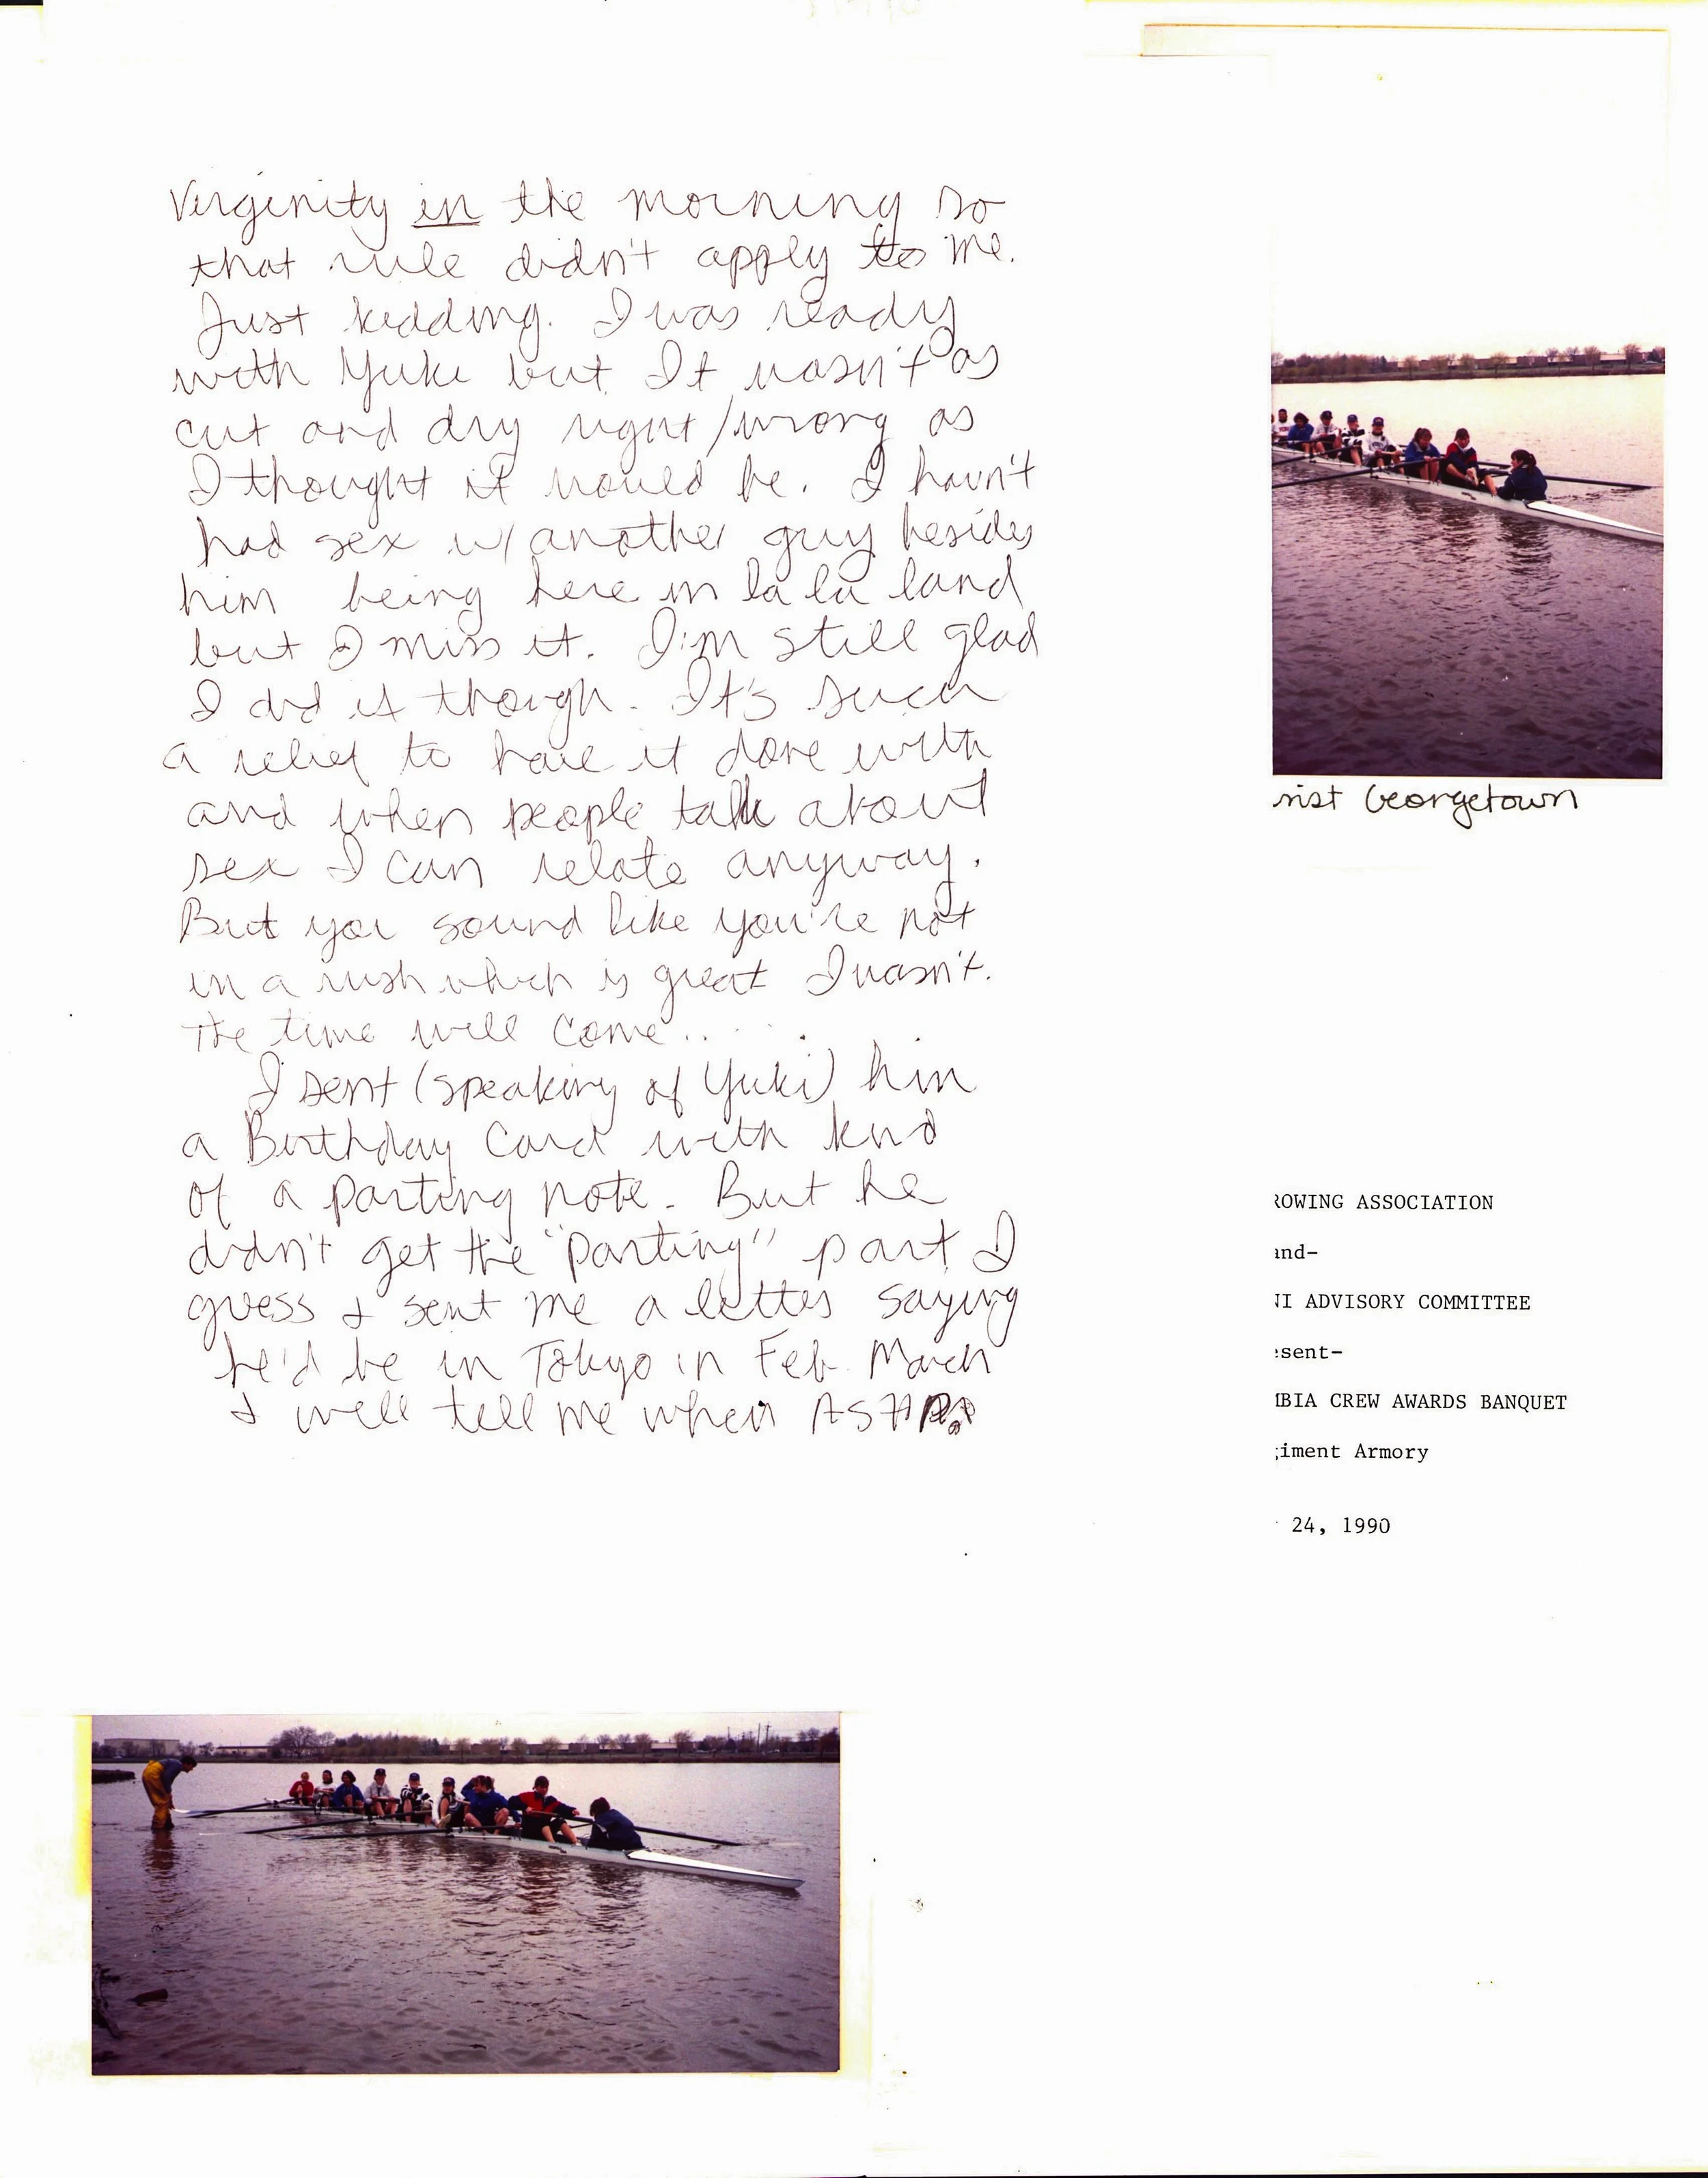 Virginity in the morning so
that rule didn't apply to me.
Just kidding. I was ready
with Yuki but It wasn't as
cut and dry right/wrong as
I thought it would be. I havn't
had sex w/ another guy besides
him being here in la la land
but I miss it. I'm still glad
I did it though. It's such
a relief to have it done with
and when people talk about
sex I can relate anyway.
But you sound like you're not
in a rush which is great I wasn't.
The time will come.....
I sent (speaking of Yuki) him
a Birthday Card with kind
of a parting note. But he
didn't get the "parting" part I
guess & sent me a letter saying
he'd be in Tokyo in Feb. March
& will tell me when ASAP.
rist Georgetown
ROWING ASSOCIATION
and-
NI ADVISORY COMMITTEE
esent-
MBIA CREW AWARDS BANQUET
giment Armory
24, 1990